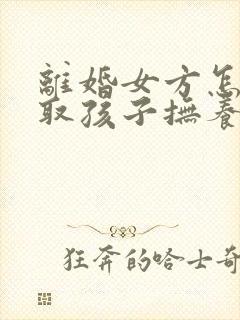 離婚女方怎
取孩子撫養
狂奔的哈士奇